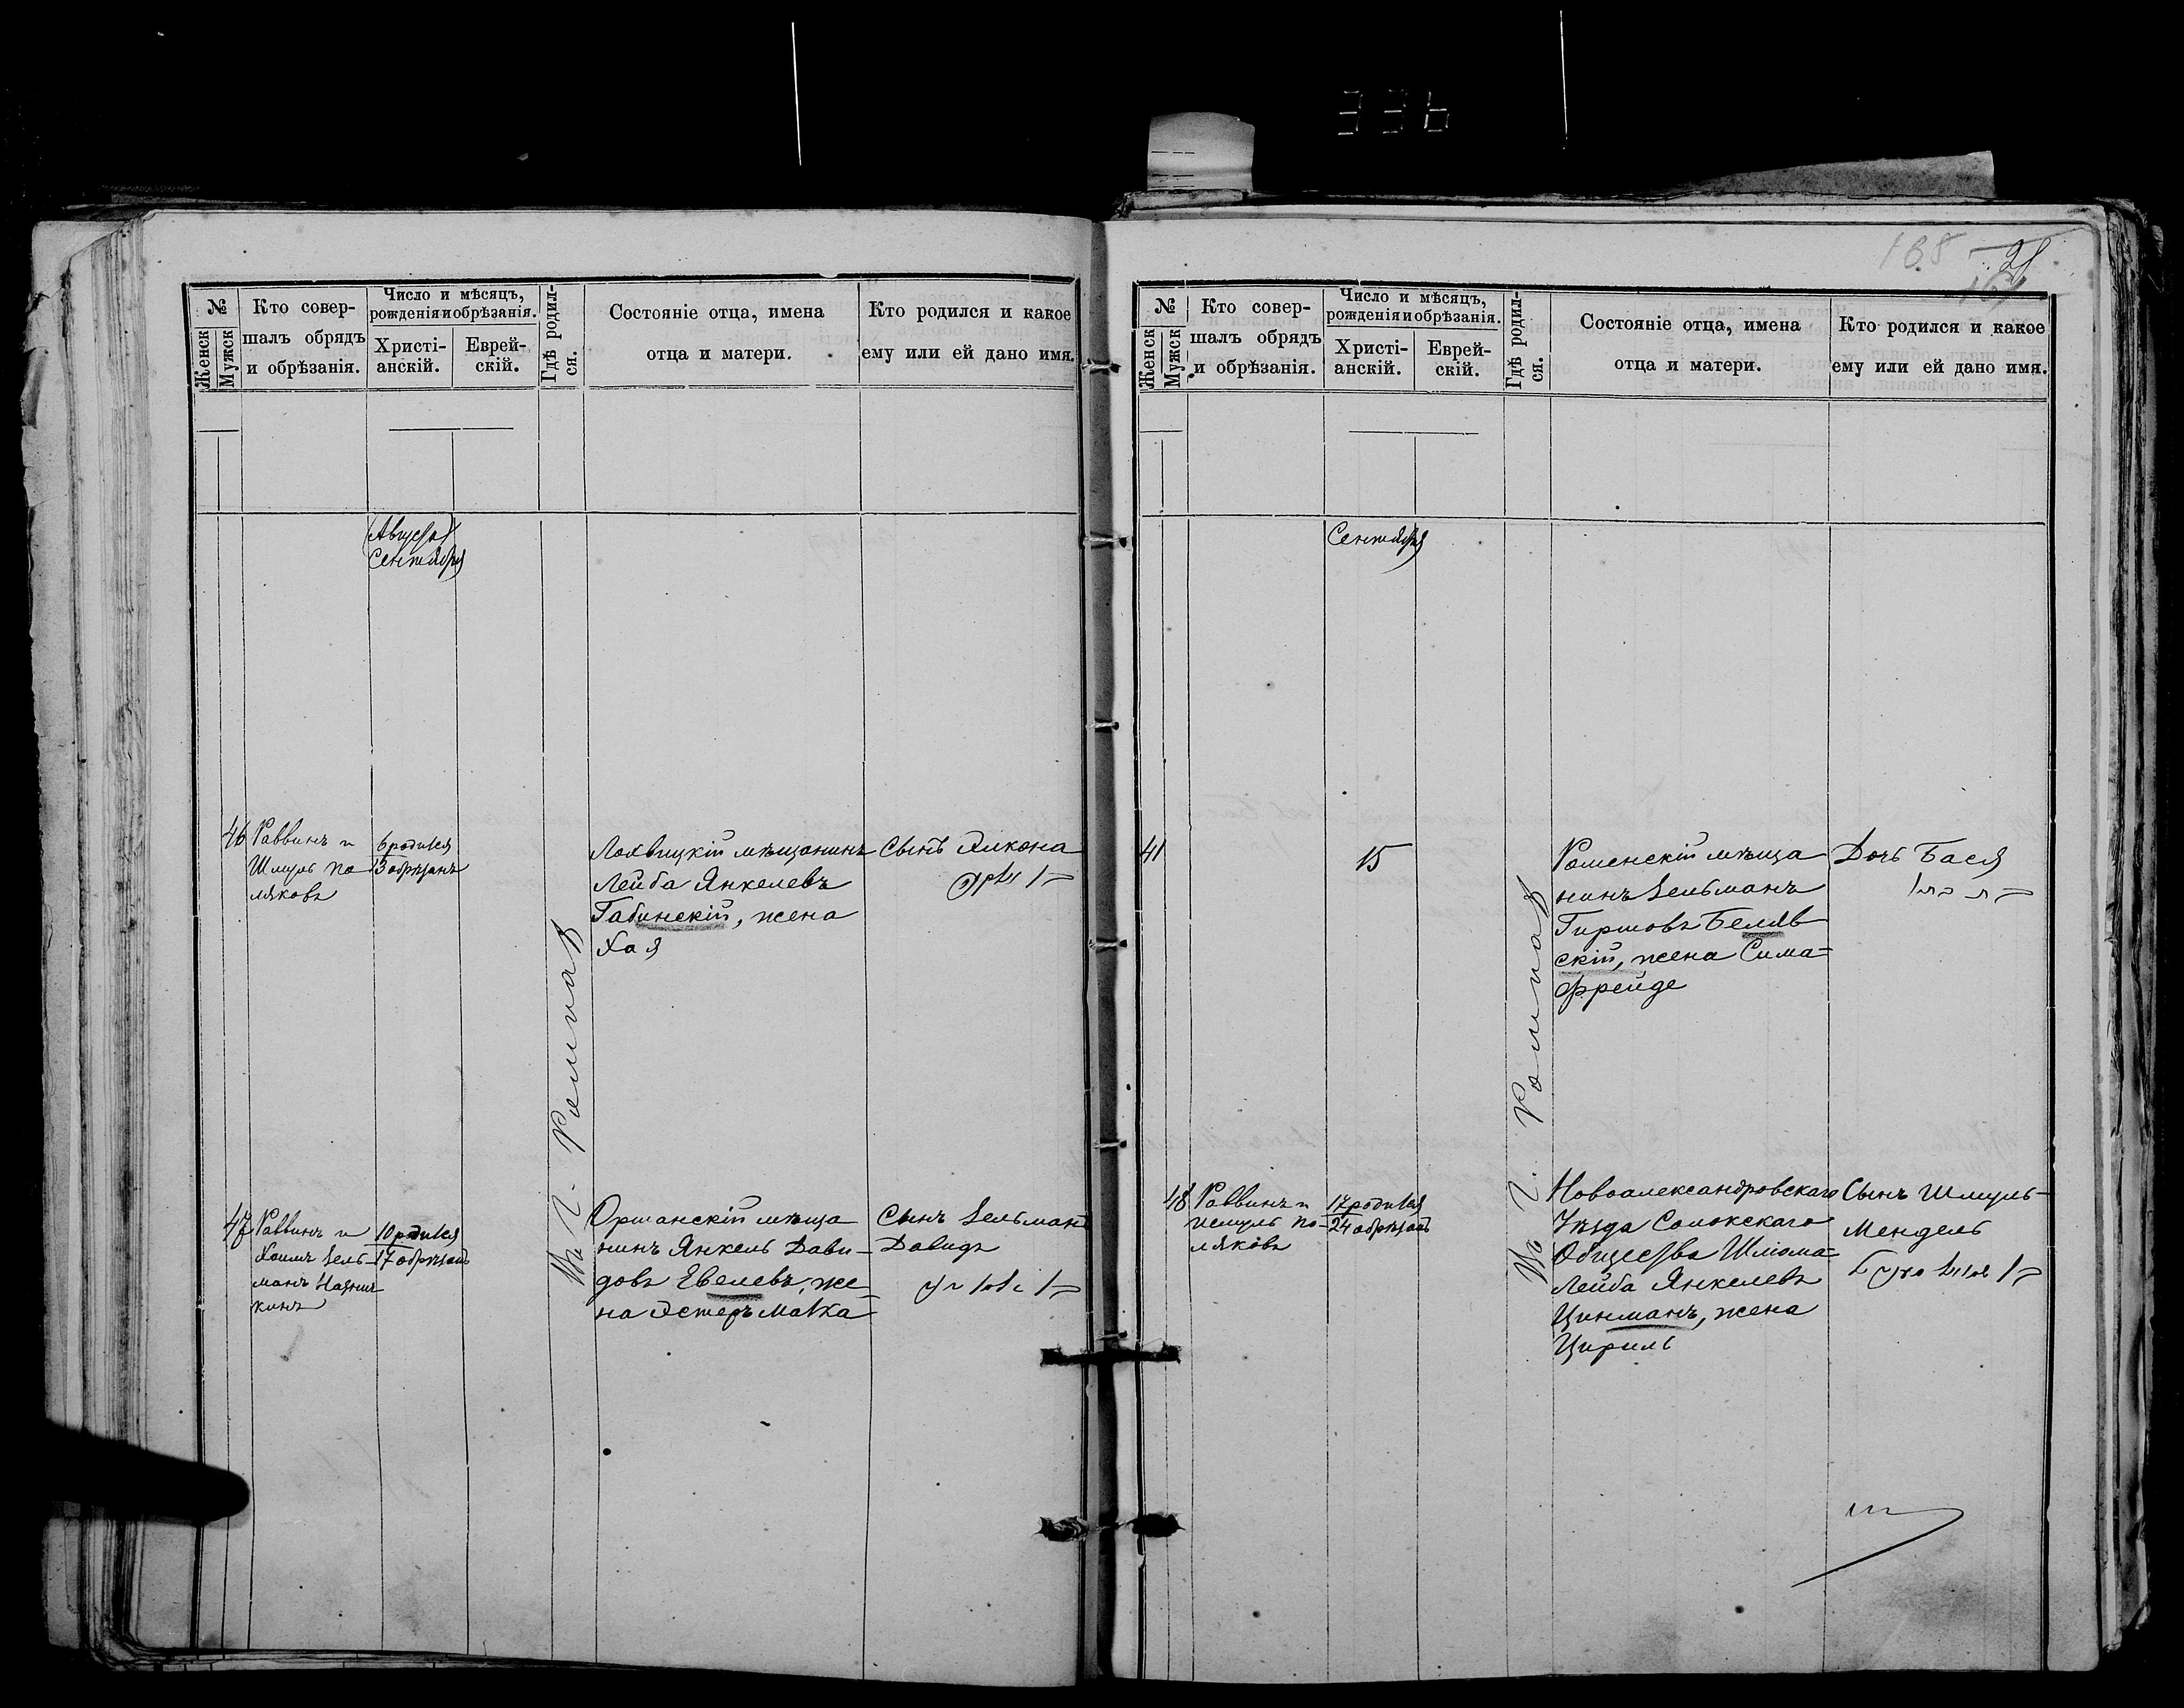 336
№
Женск
Мужск
Кто совер-
шалъ обрядъ
и обрѣзанія.
Число и мѣсяцъ,
рожденія и обрѣзанія.
Христі-
анскій.
Еврей-
скій.
Гдѣ родил-
ся.
Состояніе отца, имена
отца и матери.
Кто родился и какое
ему или ей дано имя.
Августа
Сентября
46
Раввинъ и
Шмуль По
ляковъ
6 родился
13 обрѣзанъ
Лохвицкій мѣщанинъ
Лейба Янкелевъ
Габинскій, жена
Хая
Сынъ Элкона
въ г. Ромнахъ
47
Раввинъ и
Хаимъ Зель-
манъ
кинъ
10 родился
17 обрѣзанъ
Оршанскій мѣща
нинъ Янкель Дави-
довъ Евелевъ, же
на Эстеръ Малка
Сынъ Зельманъ
Давидъ
168
№
Женск
Мужск
Кто совер-
шалъ обрядъ
и обрѣзанія.
Число и мѣсяцъ,
рожденія и обрѣзанія.
Христі-
анскій.
Еврей-
скій.
Гдѣ родил-
ся.
Состояніе отца, имена
отца и матери.
Кто родился и какое
ему или ей дано имя.
Сентября
41
15
Роменскій мѣща
нинъ Зельманъ
Гиршовъ Беляв
скій, жена Сима-
Фрейде
Дочь Бася
въ г. Ромнахъ
48
Раввинъ и
Шмуль По-
ляковъ
17 родился
24 обрѣзанъ
Новоалександровскаго
Уѣзда Солокскаго
Общества Шліома-
Лейба Янкелевъ
Цинманъ, жена
Цириль
Сынъ Шмуль-
Мендель